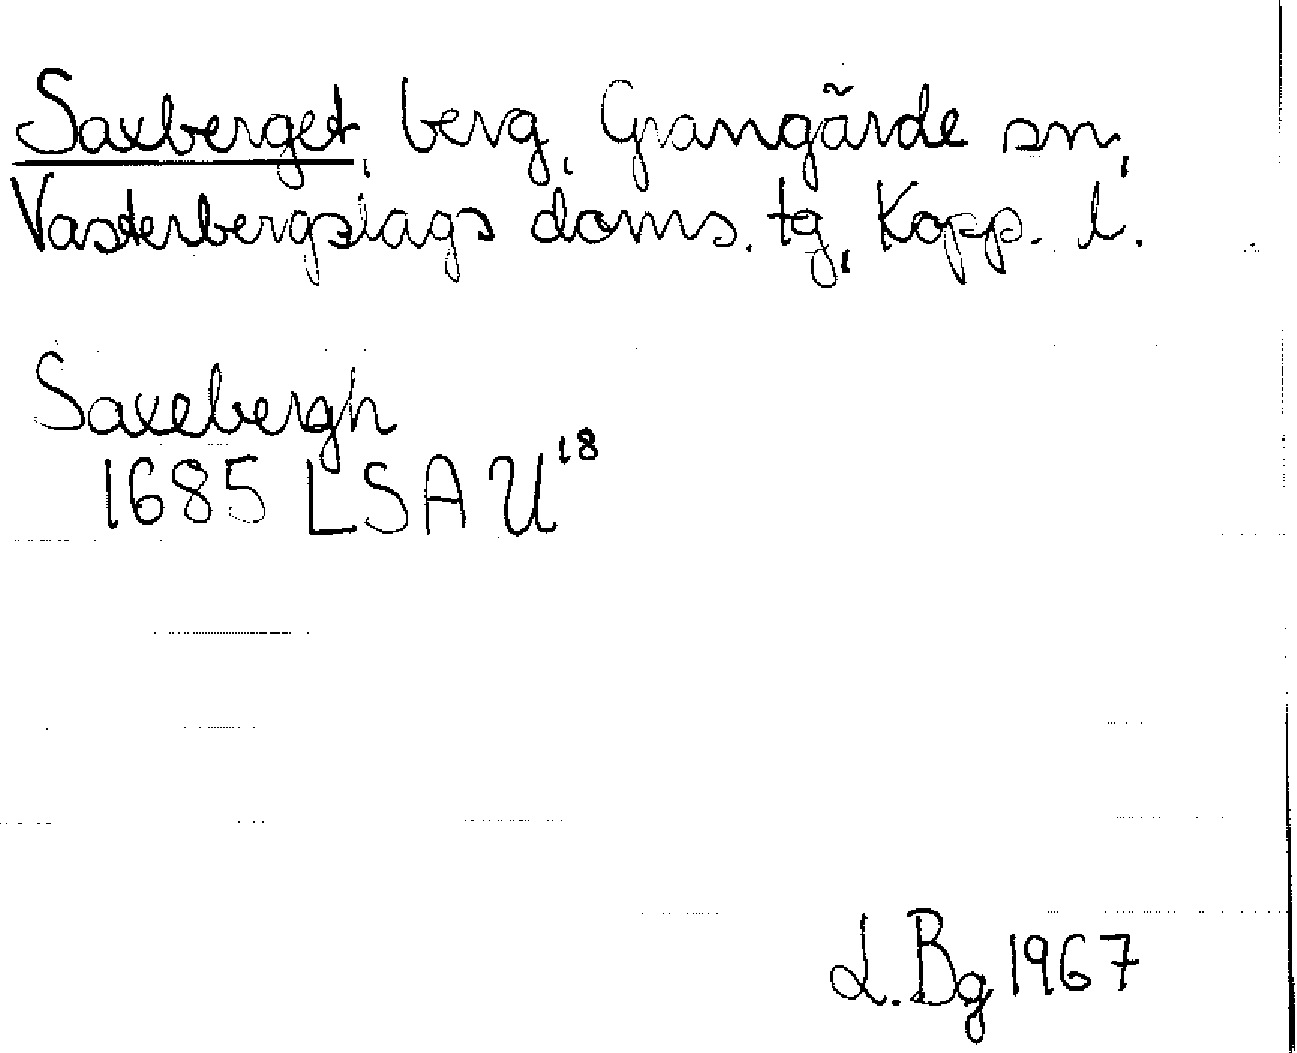 Saxberget, berg, Grangärde sn,
Vasterbergslags doms. tg, Kopp. l.
Saxebergh
1685 LSA U¹⁸
L. Bg 1967